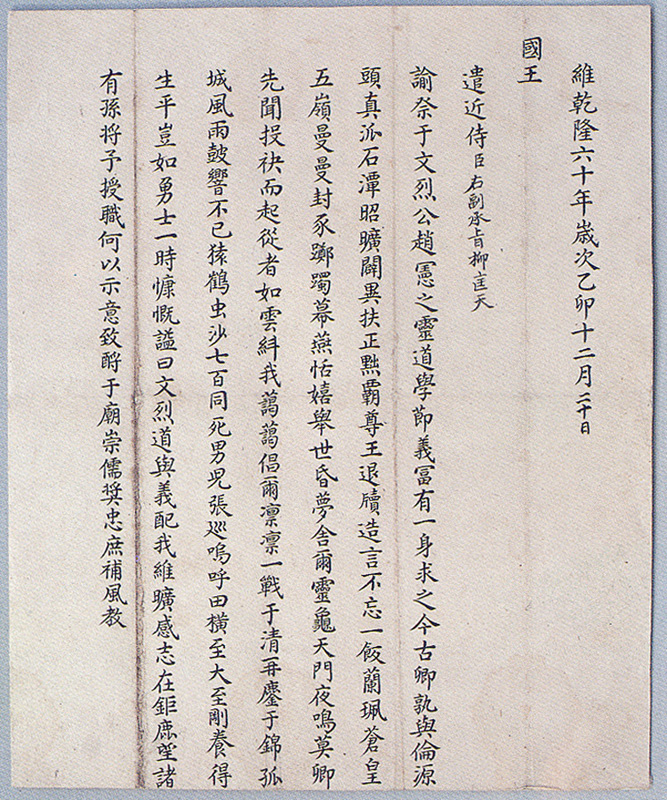 維乾隆六十年歲次乙卯十二月二十日
國王
遣近侍臣右副承旨柳匡天
諭祭于文烈公趙憲之靈道學節義富有一身求之今古卿孰與倫源
頭真派石潭昭曠闢異扶正黜霸尊王退牘造言不忘一飯蘭珮蒼皇
五嶺曼曼封豕躑躅幕燕恬嬉舉世昏夢舍爾靈龜天門夜鳴莫卿
先聞投袂而起從者如雲糾我藹藹倡爾凜凜一戰于清再鏖于錦孤
城風雨鼓響不已猿鶴虫沙七百同死男兒張巡嗚呼田橫至大至剛養得
生平豈如勇士一時慷慨謚曰文烈道與義配我維曠感志在鉅鹿望諸
有孫將予授職何以示意致酹于廟崇儒奬忠庶補風教